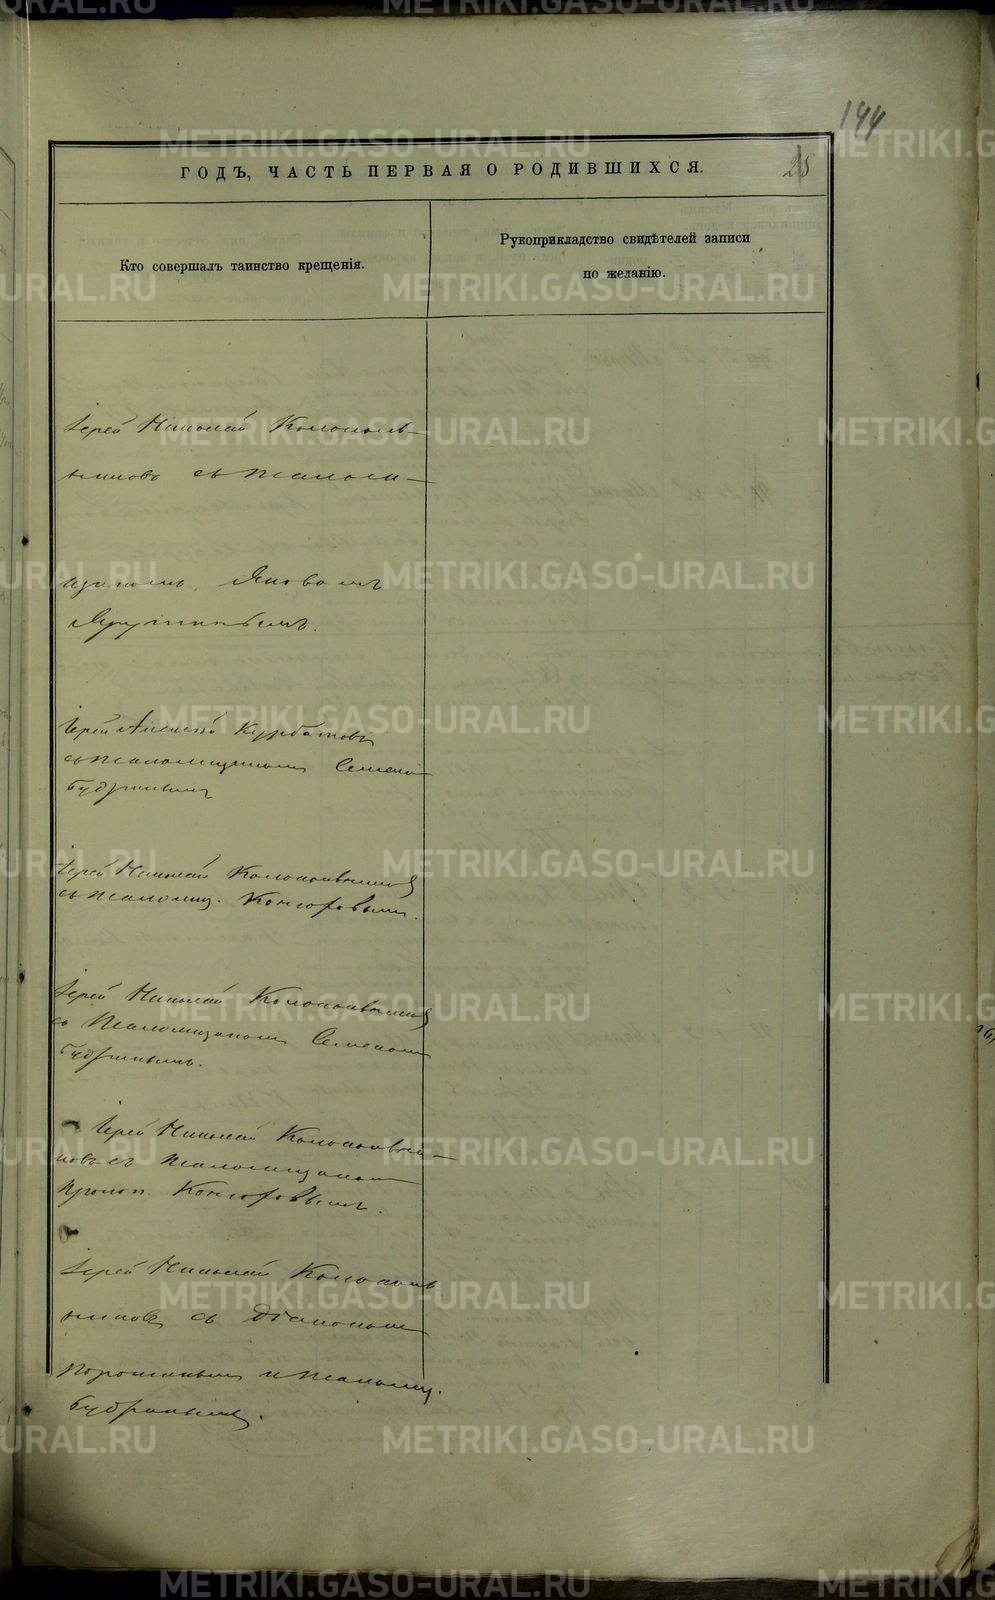 144
ГОДЪ, ЧАСТЬ ПЕРВАЯ О РОДИВШИХСЯ.
Кто совершалъ таинство крещенія.
Рукоприкладство свидѣтелей записи
по желанію.
Іерей Николай Колоколь-
никовъ съ псалом-
щикомъ Яковомъ
Іерей Алексѣй Курбатовъ
съ псаломщикомъ Семено
Будринымъ
Іерей Николай Колокольников
съ псаломщ. Конюховымъ.
Іерей Николай Колокольников
съ Псаломщикомъ Семеномъ
Будринымъ.
Іерей Николай Колокольни-
ковъ съ псаломщикомъ
Прокоп. Конюховымъ.
Іерей Николай Колоколь
никовъ съ Діакономъ
и псаломщ.
Будринымъ.
METRIKI.GASO-URAL.RU